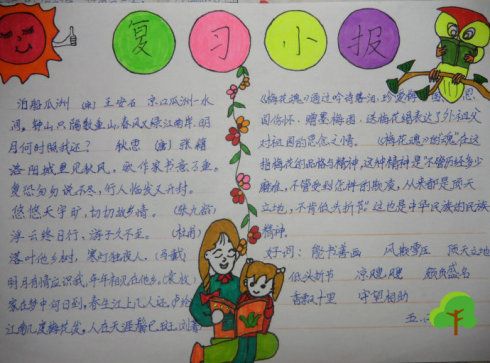 复习小报
泊船瓜洲 (宋) 王安石 京口瓜洲一水
间,钟山只隔数重山,春风又绿江南岸,明
月何时照我还? 秋思 (唐) 张籍
洛阳城里见秋风,欲作家书意万重。
复恐匆匆说不尽,行人临发又开封。
悠悠天宇旷,切切故乡情。(张九龄)
浮云终日行,游子久不至。(杜甫)
落叶他乡树,寒灯独夜人。(马戴)
明月有情应识我,年年相见在他乡。(袁
家在梦中何日到,春生江上几人还。卢纶
江南几度梅花发,人在天涯鬓已斑。刘著
《梅花魂》通过吟诗落泪、珍爱
因伤怀、赠墨梅图、送梅花绢表达了外祖父
对祖国的思念之情。《梅花魂》的"魂"在这
指梅花的品格与精神,这种精神是"不管历经多少
磨难,不管受到怎样的欺凌,从来都是顶天
立地,不肯低头折节。"这也是中华民族的民族
精神
好词: 能书善画 风欺雪压 顶天立地
低头折节 凉飕飕 颇负盛名
香飘十里 守望相助
五